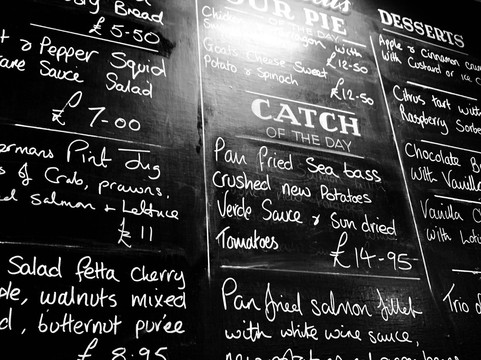 Bread
£5-50
Pepper Squid
Sauce Salad
£7-00
Pint Jug
of Crab, prawns,
Salmon + Lettuce
£11
Salad fetta Cherry
walnuts mixed
, butternut purée
£8.95
PIE
OF THE DAY
Chicken with
£12-50
Goats Cheese Sweet
Potato & Spinach
£12-50
CATCH
OF THE DAY
Pan fried Sea bass
crushed new Potatoes
Verde Sauce & Sun dried
Tomatoes
£14-95
Pan fried salmon fillet
with white wine sauce,
DESSERTS
Apple & cinnamon
with Custard or ice
Citrus tart
Raspberry
Chocolate
with
Vanilla
with
Trio